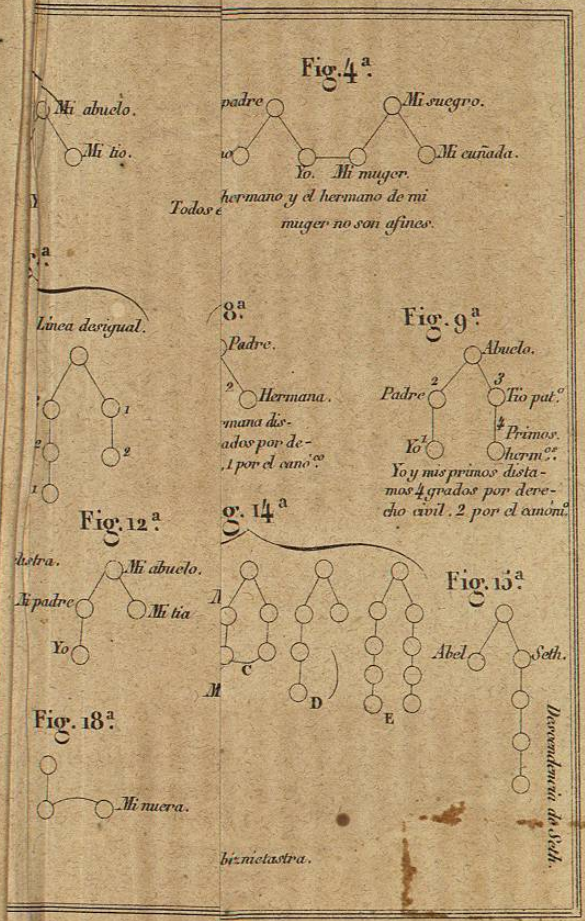 Fig. 4ª.
Mi abuelo.
Mi tio.
padre
Mi suegro.
Yo. Mi muger.
Mi cuñada.
Todos
hermano y el hermano de mi
muger no son afines.
Linea desigual.
2
2
1
1
2
8ª
Padre.
2
Hermana.
mana dis-
ados por de-
1 por el canó.co
Fig. 9ª.
Abuelo.
Padre
2
3
Tio pat.o
Yo
1
4
Primos
herm.os
Yo y mis primos dista-
mos 4 grados por dere-
cho civil. 2 por el canóni.o
Fig. 12ª
Mi abuelo.
Mi padre
Mi tia
Yo
g. 14ª
C
D
E
Fig. 15ª.
Abel
Seth.
Descendencia de Seth.
Fig. 18ª.
Mi nuera.
biznietastra.